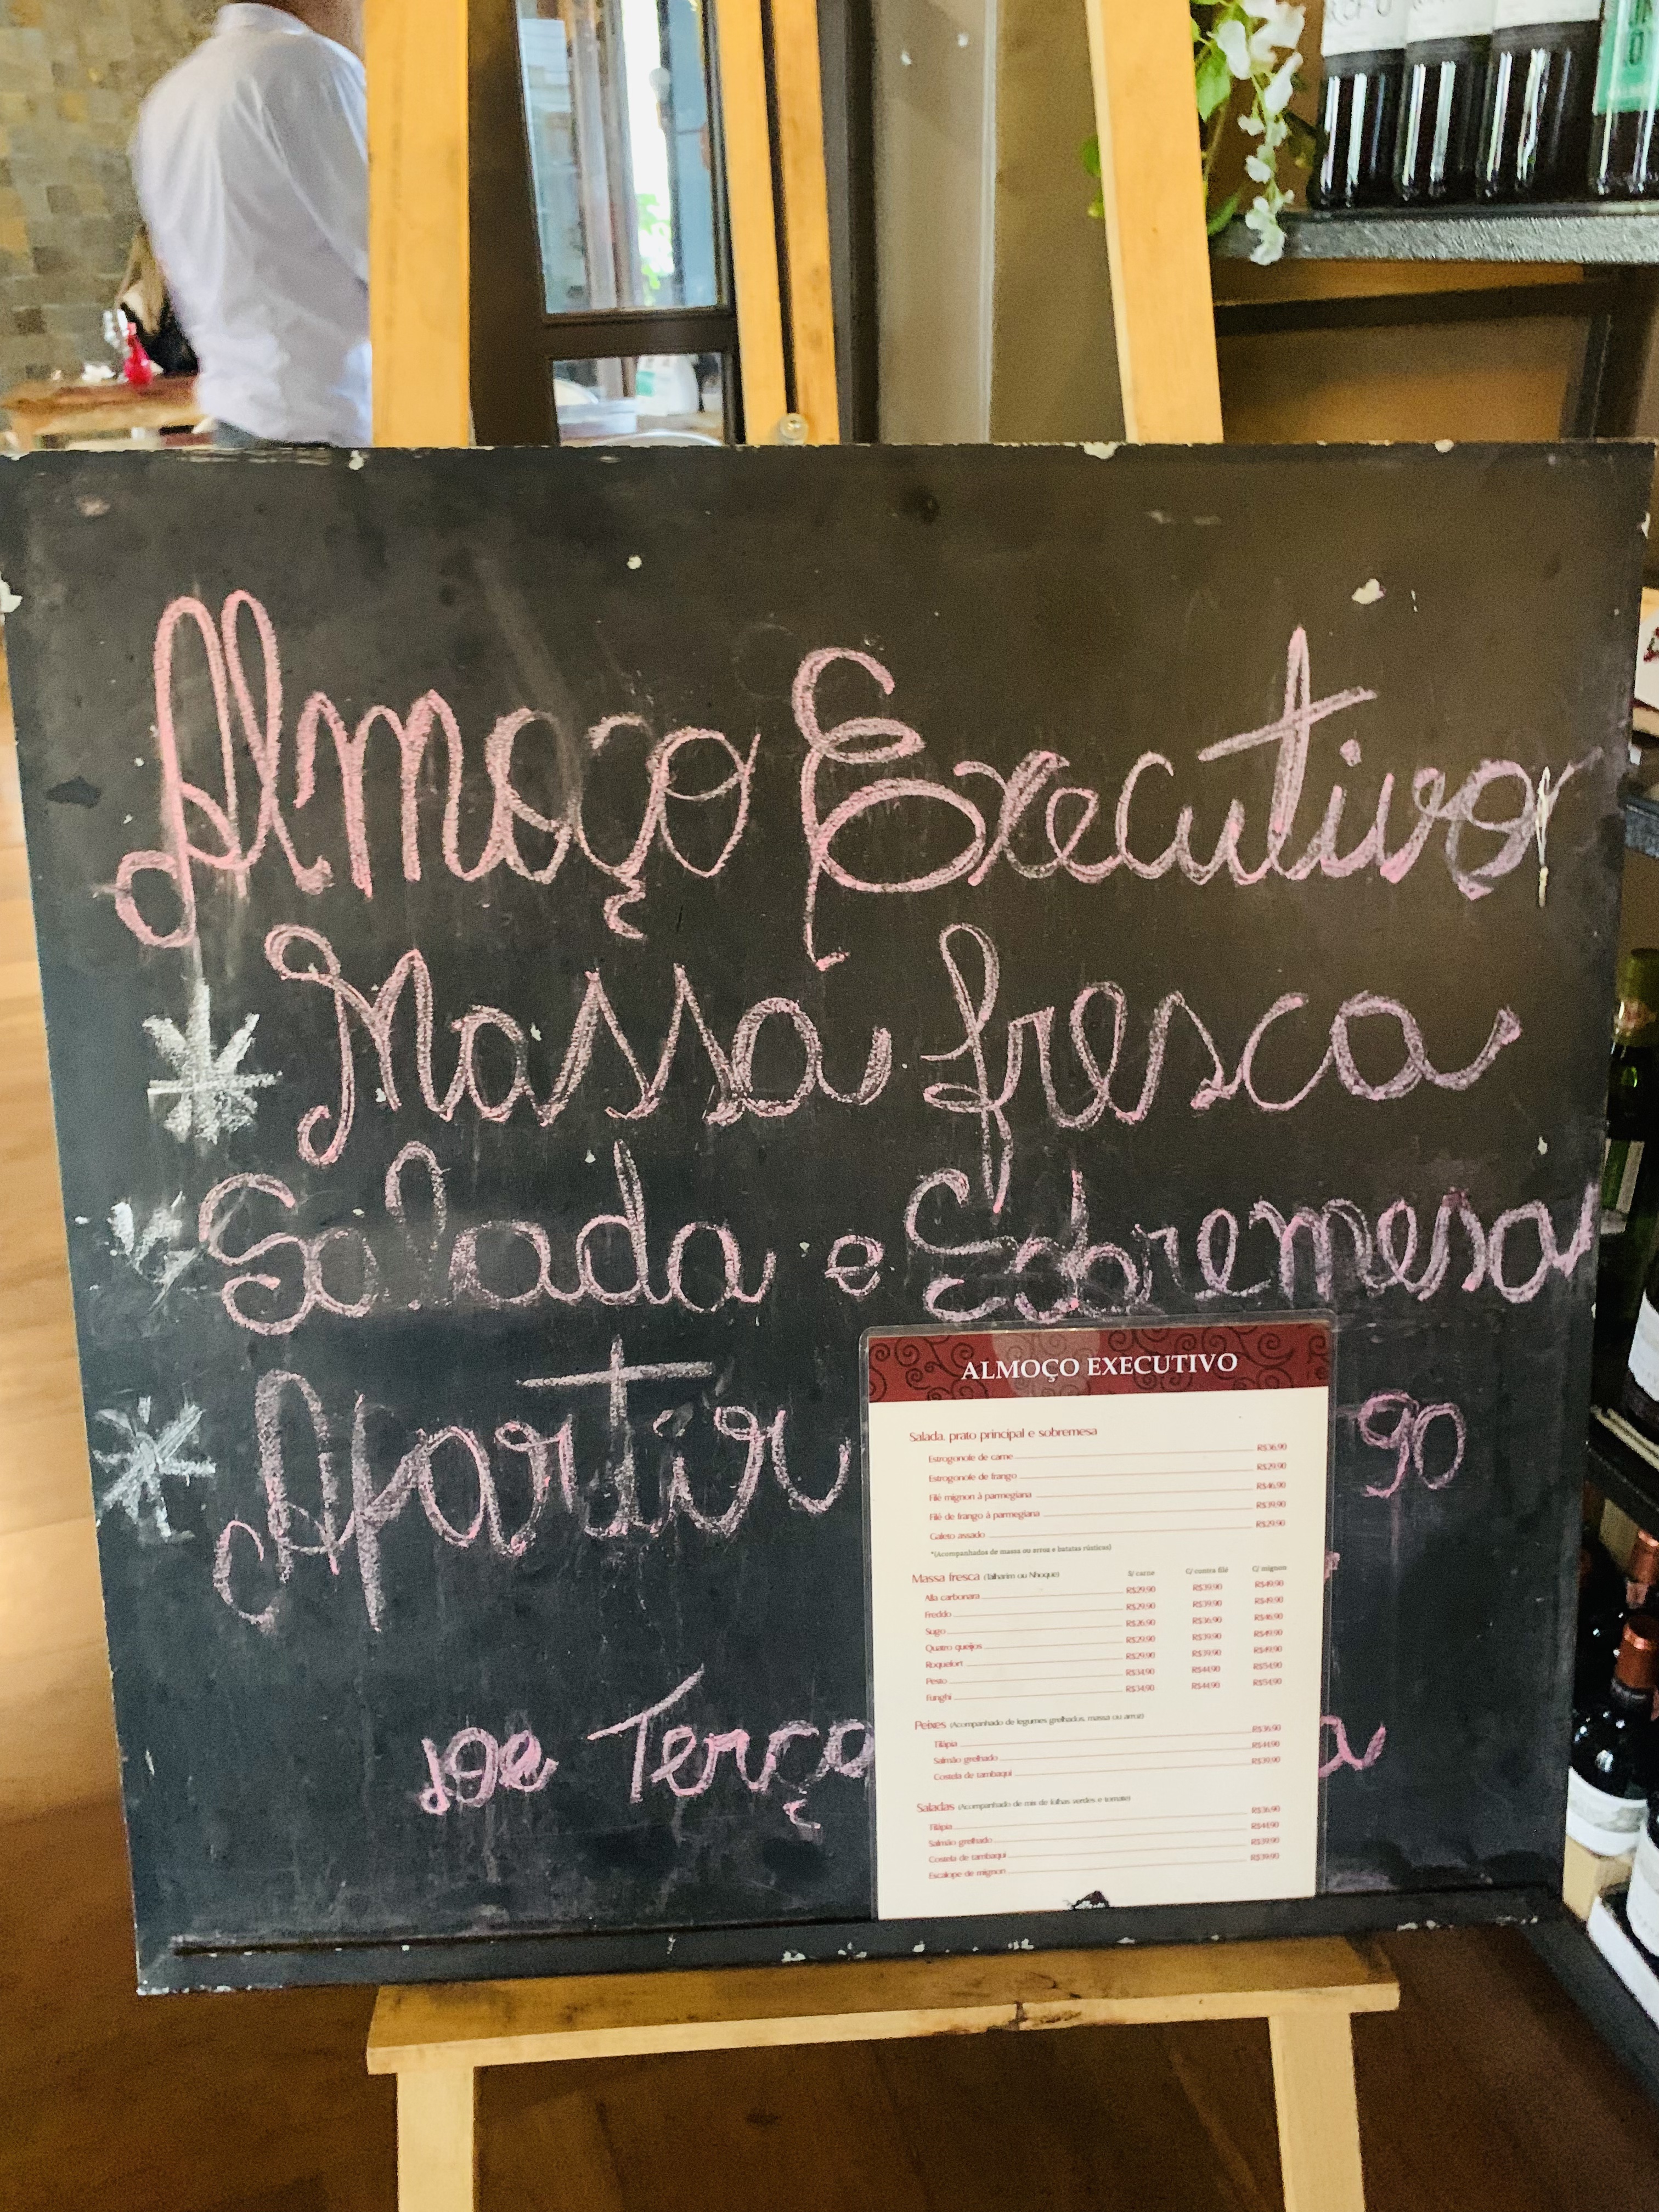 Almoço Executivo
Massa fresca
Salada e Sobremesa
Apartir 90
De Terça a
ALMOÇO EXECUTIVO
Salada, prato principal e sobremesa
Estrogonofe de carne R$36,90
Estrogonofe de frango R$29,90
Filé mignon à parmegiana R$46,90
Filé de frango à parmegiana R$39,90
Galeto assado R$29,90
*(Acompanhados de massa ou arroz e batatas rústicas)
Massa fresca (Talharim ou Nhoque) S/ carne C/ contra filé C/ mignon
Alla carbonara R$29,90 R$39,90 R$49,90
Freddo R$29,90 R$39,90 R$49,90
Sugo R$26,90 R$36,90 R$46,90
Quatro queijos R$29,90 R$39,90 R$49,90
Roquefort R$29,90 R$39,90 R$49,90
Pesto R$34,90 R$44,90 R$54,90
Funghi R$34,90 R$44,90 R$54,90
Peixes (Acompanhado de legumes grelhados, massa ou arroz)
Tilápia R$36,90
Salmão grelhado R$44,90
Costela de tambaqui R$39,90
Saladas (Acompanhado de mix de folhas verdes e tomate)
Tilápia R$36,90
Salmão grelhado R$44,90
Costela de tambaqui R$39,90
Escalope de mignon R$39,90